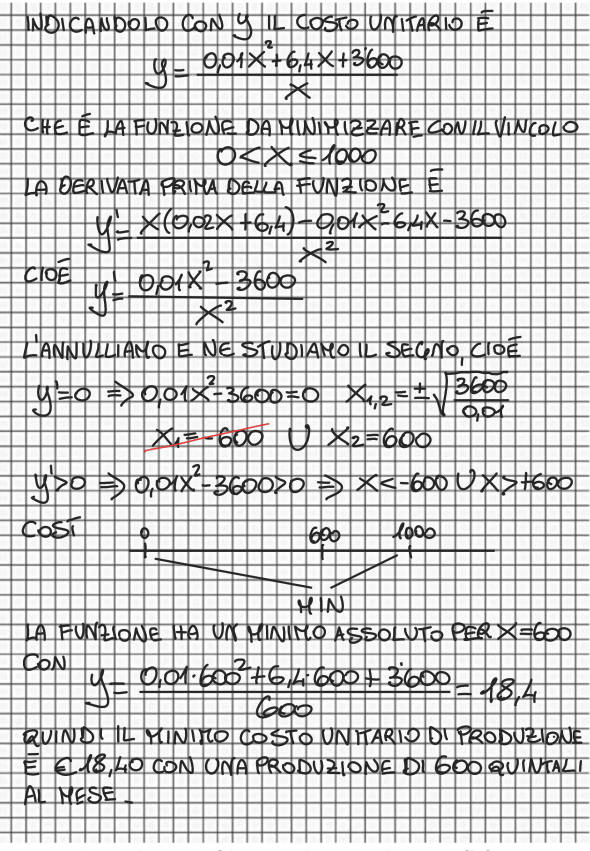 INDICANDOLO CON y IL COSTO UNITARIO È
y = (0,01x² + 6,4x + 3600) / x
CHE È LA FUNZIONE DA MINIMIZZARE CON IL VINCOLO
0 < x ≤ 1000
LA DERIVATA PRIMA DELLA FUNZIONE È
y' = (x(0,02x + 6,4) - 0,01x² - 6,4x - 3600) / x²
CIOÈ y' = (0,01x² - 3600) / x²
L'ANNULLIAMO E NE STUDIAMO IL SEGNO, CIOÈ
y' = 0 ⇒ 0,01x² - 3600 = 0 x₁,₂ = ± √(3600 / 0,01)
x₁ = -600 ∪ x₂ = 600
y' > 0 ⇒ 0,01x² - 3600 > 0 ⇒ x < -600 ∪ x > +600
COSÌ 0 600 1000
MIN
LA FUNZIONE HA UN MINIMO ASSOLUTO PER X=600
CON y = (0,01·600² + 6,4·600 + 3600) / 600 = 18,4
QUINDI IL MINIMO COSTO UNITARIO DI PRODUZIONE
È € 18,40 CON UNA PRODUZIONE DI 600 QUINTALI
AL MESE.